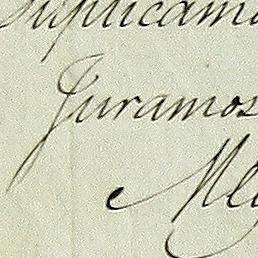 Suplicamo
Juramos